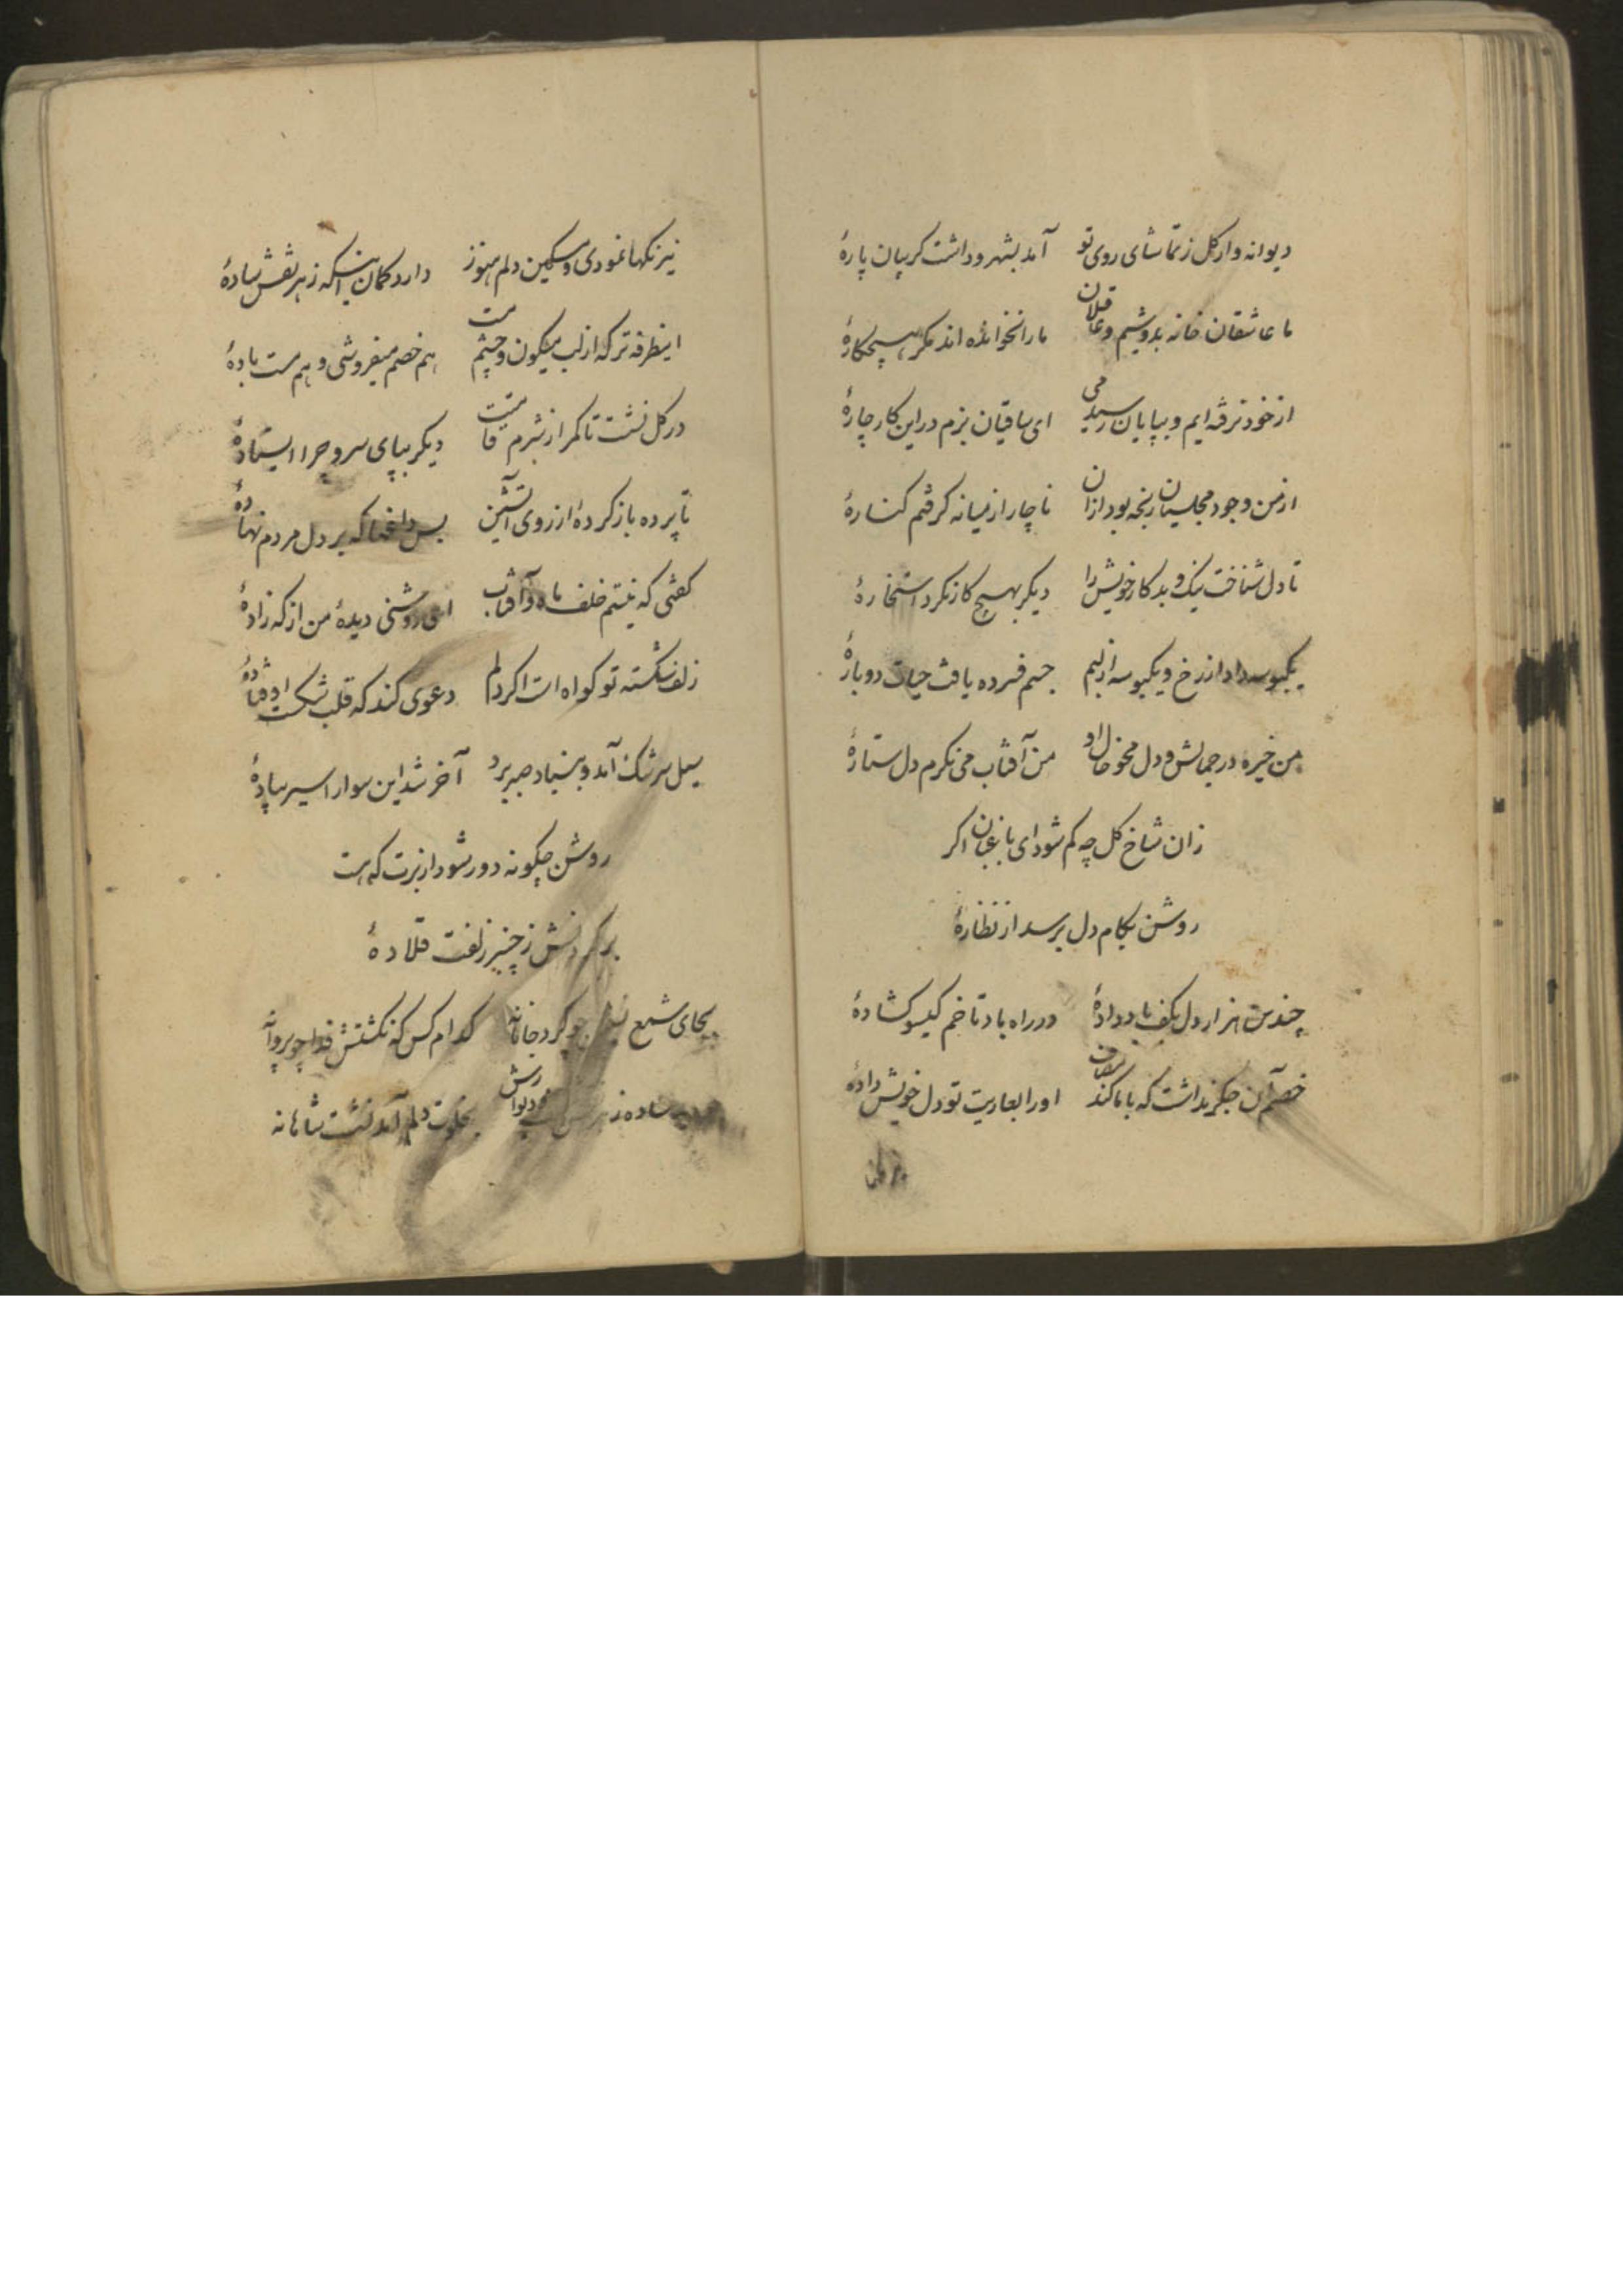 دیوانه وار کل ز تماشای روی تو آمد بشهر و داشت کریبان پارهٔ
ما عاشقان خانه بدوشیم و عاقلان ما را نخوانده اند مکر هیچکارهٔ
از خود نرفته ایم و بپایان رسید می ای ساقیان بزم در این کار چارهٔ
از من وجود مجلسیان رنجه بود از آن ناچار از میانه کرفتم کنارهٔ
تا دل شناخت نیک و بد کار خویش را دیکر بهیچ کار نکرد استخارهٔ
یکبوسه داد از رخ و یکبوسه از لبم جسم فسرده یافت حیات دوبارهٔ
من خیره در جمالش و دل محو خال او من آفتاب می نکرم دل ستارهٔ
زان شاخ کل چه کم شود ای باغبان اکر
روشن بکام دل برسد از نظارهٔ
چندین هزار دل بکف باد دادهٔ در راه باد تا خم کیسو کشادهٔ
خصم آن جکر نداشت که با ما کند او را بعاریت تو دل خویش دادهٔ
نیرنکها نمودی و مسکین دلم هنوز دارد کمان اینکه ز هر نقش سادهٔ
اینطرفه تر که از لب میکون و چشم مست هم خصم میفروشی و هم مست بادهٔ
در کل نشست تا کمر از شرم قامتت دیکر بپای سرو چرا ایستادهٔ
تا پرده باز کردهٔ از روی آتشین بس داغها که بر دل مردم نهادهٔ
کفتی که نیستم خلف ماه و آفتاب ای روشنی دیدهٔ من از که زادهٔ
زلف شکسته تو کواه است اکر دلم دعوی کند که قلب شکست اوفتادهٔ
سیل سرشک آمد و بنیاد صبر برد آخر شد این سوار اسیر پیادهٔ
روشن چکونه دور شود از برت که هست
بر کردنش ز چنبر زلفت قلادهٔ
بجای شمع چو کرد جانانه کدام کس که نکشتش فدا چو پروانه
ساده ز بخلوت دلم آمد نشست شاهانه